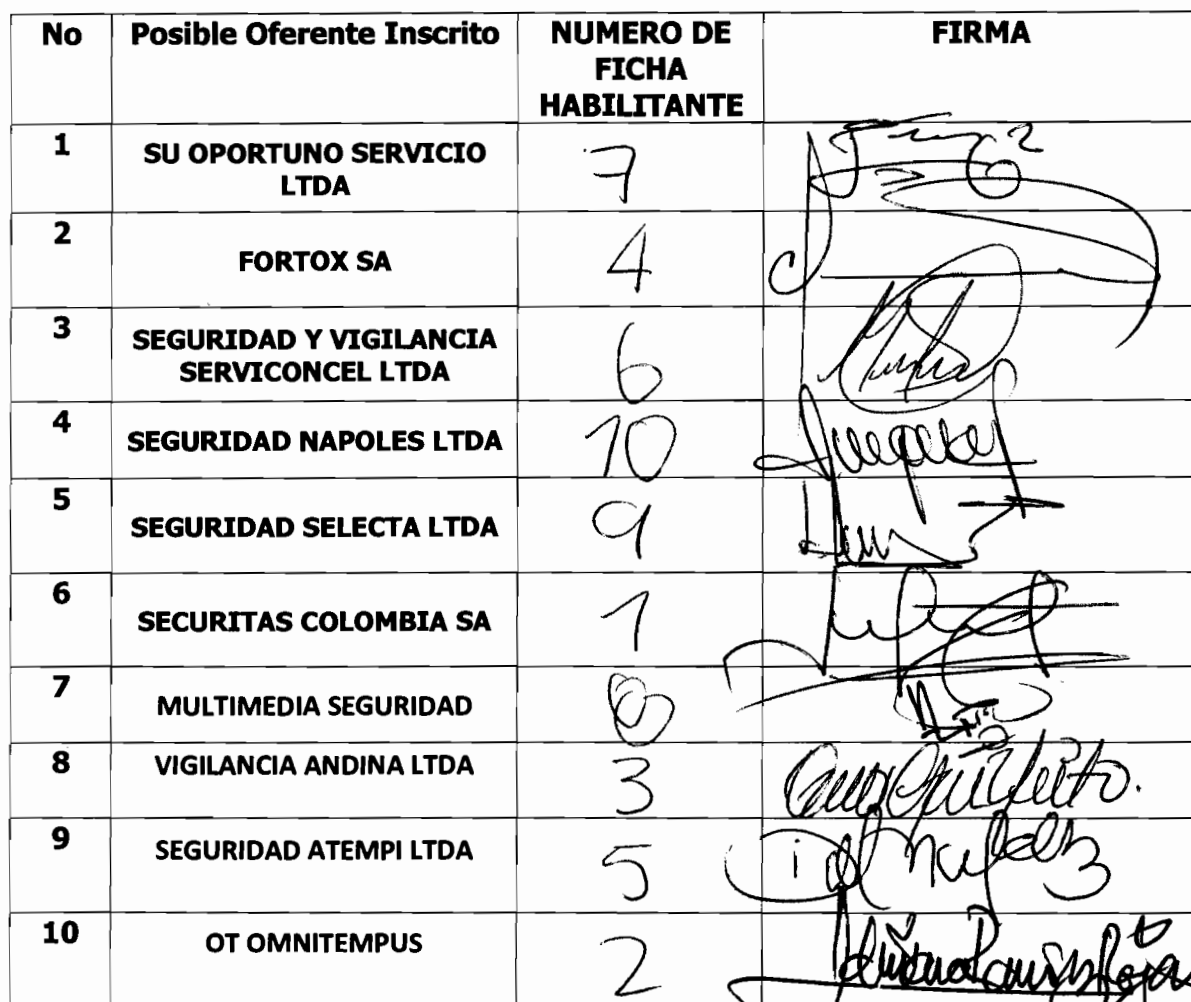 No Posible Oferente Inscrito NUMERO DE FICHA HABILITANTE FIRMA
1 SU OPORTUNO SERVICIO LTDA 7
2 FORTOX SA 4
3 SEGURIDAD Y VIGILANCIA SERVICONCEL LTDA 6
4 SEGURIDAD NAPOLES LTDA 10
5 SEGURIDAD SELECTA LTDA 9
6 SECURITAS COLOMBIA SA 1
7 MULTIMEDIA SEGURIDAD 8
8 VIGILANCIA ANDINA LTDA 3
9 SEGURIDAD ATEMPI LTDA 5
10 OT OMNITEMPUS 2